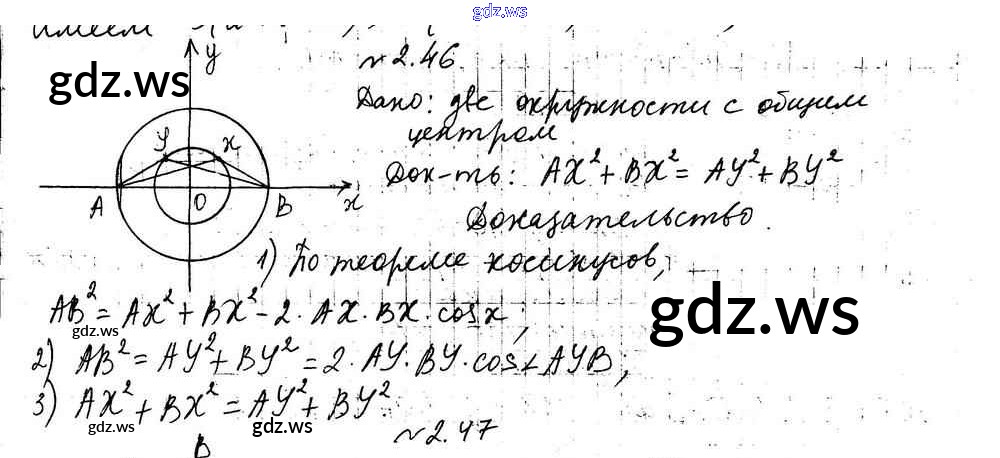 gdz.ws
имеем
у
N 2.46
gdz.ws
Дано: две окружности с общим
центром
У х
Док-ть: AX² + BX² = AY² + BY²
A O B x
Доказательство.
1) По теореме косинусов,
AB² = AX² + BX² - 2 · AX · BX · cos x;
gdz.ws
gdz.ws
2) AB² = AY² + BY² = 2 · AY · BY · cos ∠ AYB;
3) AX² + BX² = AY² + BY²
gdz.ws
gdz.ws
N 2.47
B